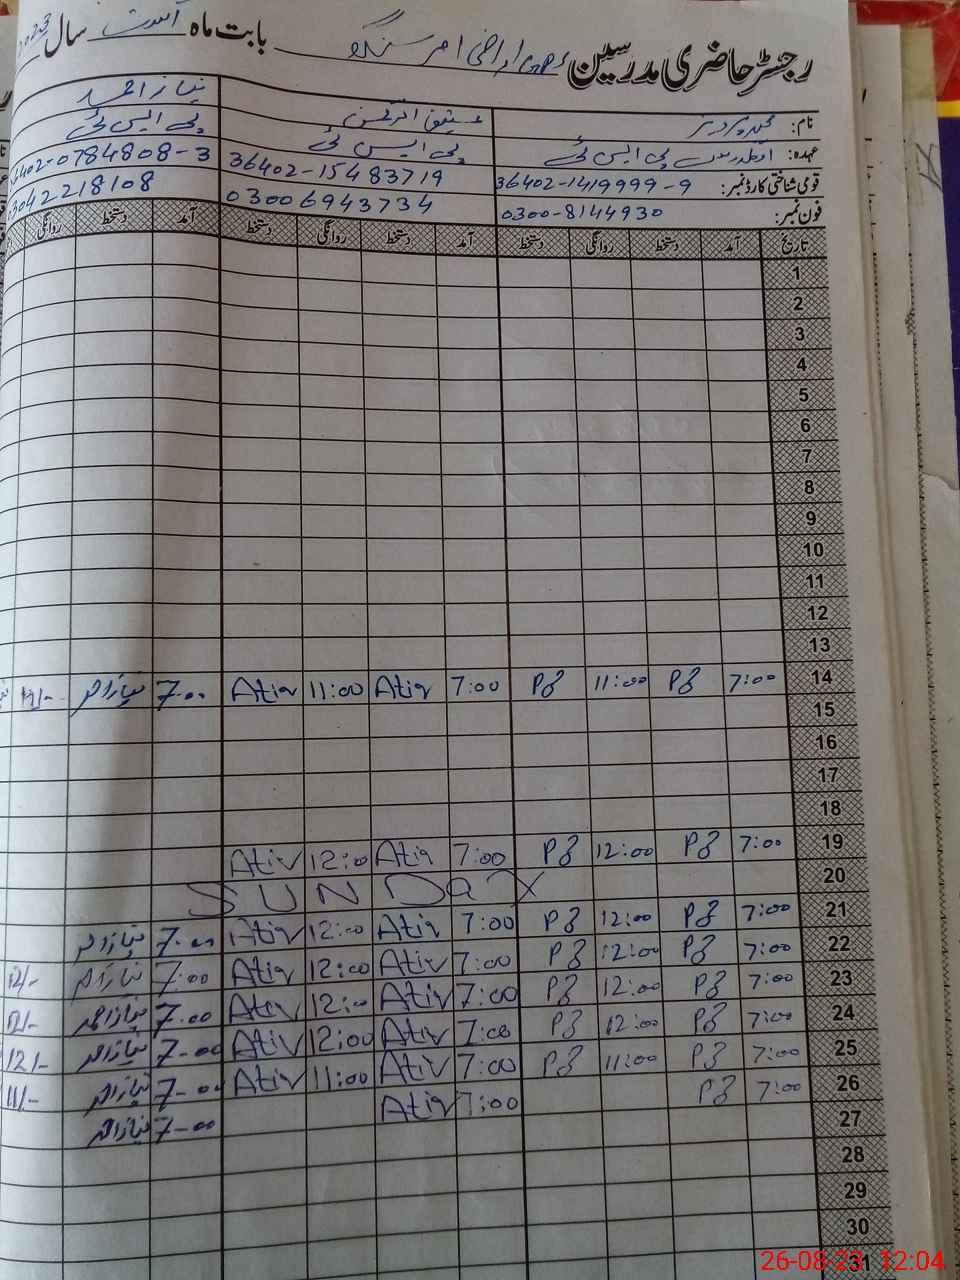 رجسٹر حاضری مدرسین GPS اراضی امر سنگھ بابت ماہ اگست سال 2023
نام: محمد پرویز عتیق الرحمن نیاز احمد
عہدہ: پی ایس ٹی پی ایس ٹی پی ایس ٹی
قومی شناختی کارڈ نمبر: 36402-1419999-9 36402-15483719 36402-0784808-3
فون نمبر: 0300-8144930 03006943734 03042218108
تاریخ آمد دستخط روانگی دستخط آمد دستخط روانگی دستخط آمد دستخط روانگی
1
2
3
4
5
6
7
8
9
10
11
12
13
14 7:00 11:00 7:00 Atiq 11:00 Atiq 7-00 نیاز احمد
15
16
17
18
19 7:00 12:00 7:00 Atiq 12:00 Atiq
20 SUNDAY
21 7:00 12:00 7:00 Atiq 12:00 Atiq 7-00 نیاز احمد
22 7:00 12:00 7:00 Atiq 12:00 Atiq 7:00 نیاز احمد 12/-
23 7:00 12:00 7:00 Atiq 12:00 Atiq 7:00 نیاز احمد 12/-
24 7:00 12:00 7:00 Atiq 12:00 Atiq 7-00 نیاز احمد 12/-
25 7:00 11:00 7:00 Atiq 11:00 Atiq 7-00 نیاز احمد 11/-
26 7:00 7:00 Atiq 7-00 نیاز احمد
27
28
29
30
31
26-08-23 12:04